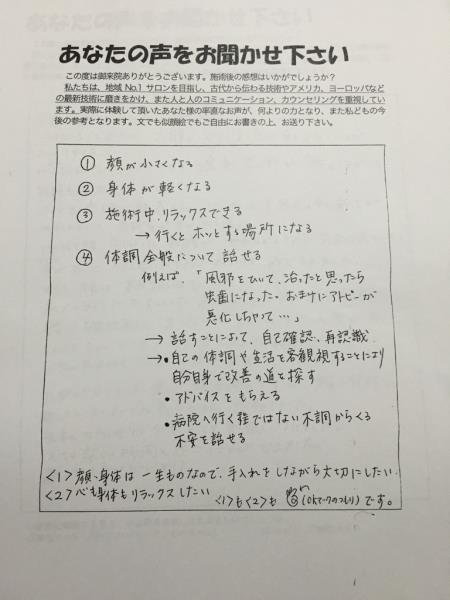 あなたの声をお聞かせ下さい
この度は御来院ありがとうございます。施術後の感想はいかがでしょうか?
私たちは、地域No.1サロンを目指し、古代から伝わる技術やアメリカ、ヨーロッパなど
の最新技術に磨きをかけ、また人と人のコミュニケーション、カウンセリングを重視してい
ます。実際に体験して頂いたあなた様の率直なお声が、何よりの力となり、また私どもの今
後の参考となります。文でも似顔絵でもご自由にお書きの上、お送り下さい。
① 顔が小さくなる
② 身体が軽くなる
③ 施術中、リラックスできる
→ 行くとホッとする場所になる
④ 体調全般について話せる
例えば、「風邪をひいて、治ったと思ったら
虫歯になった。おまけにアトピーが
悪化しちゃって…」
→ 話すことによって、自己確認、再認識
→ ・自己の体調や生活を客観視することにより
自分自身で改善の道を探す
・アドバイスをもらえる
・病院へ行く程ではない不調からくる
不安を話せる
<1> 顔・身体は一生ものなので、手入れをしながら大切にしたい
<2> 心も身体もリラックスしたい
<1>も<2>も (OKマークのつもり) です。